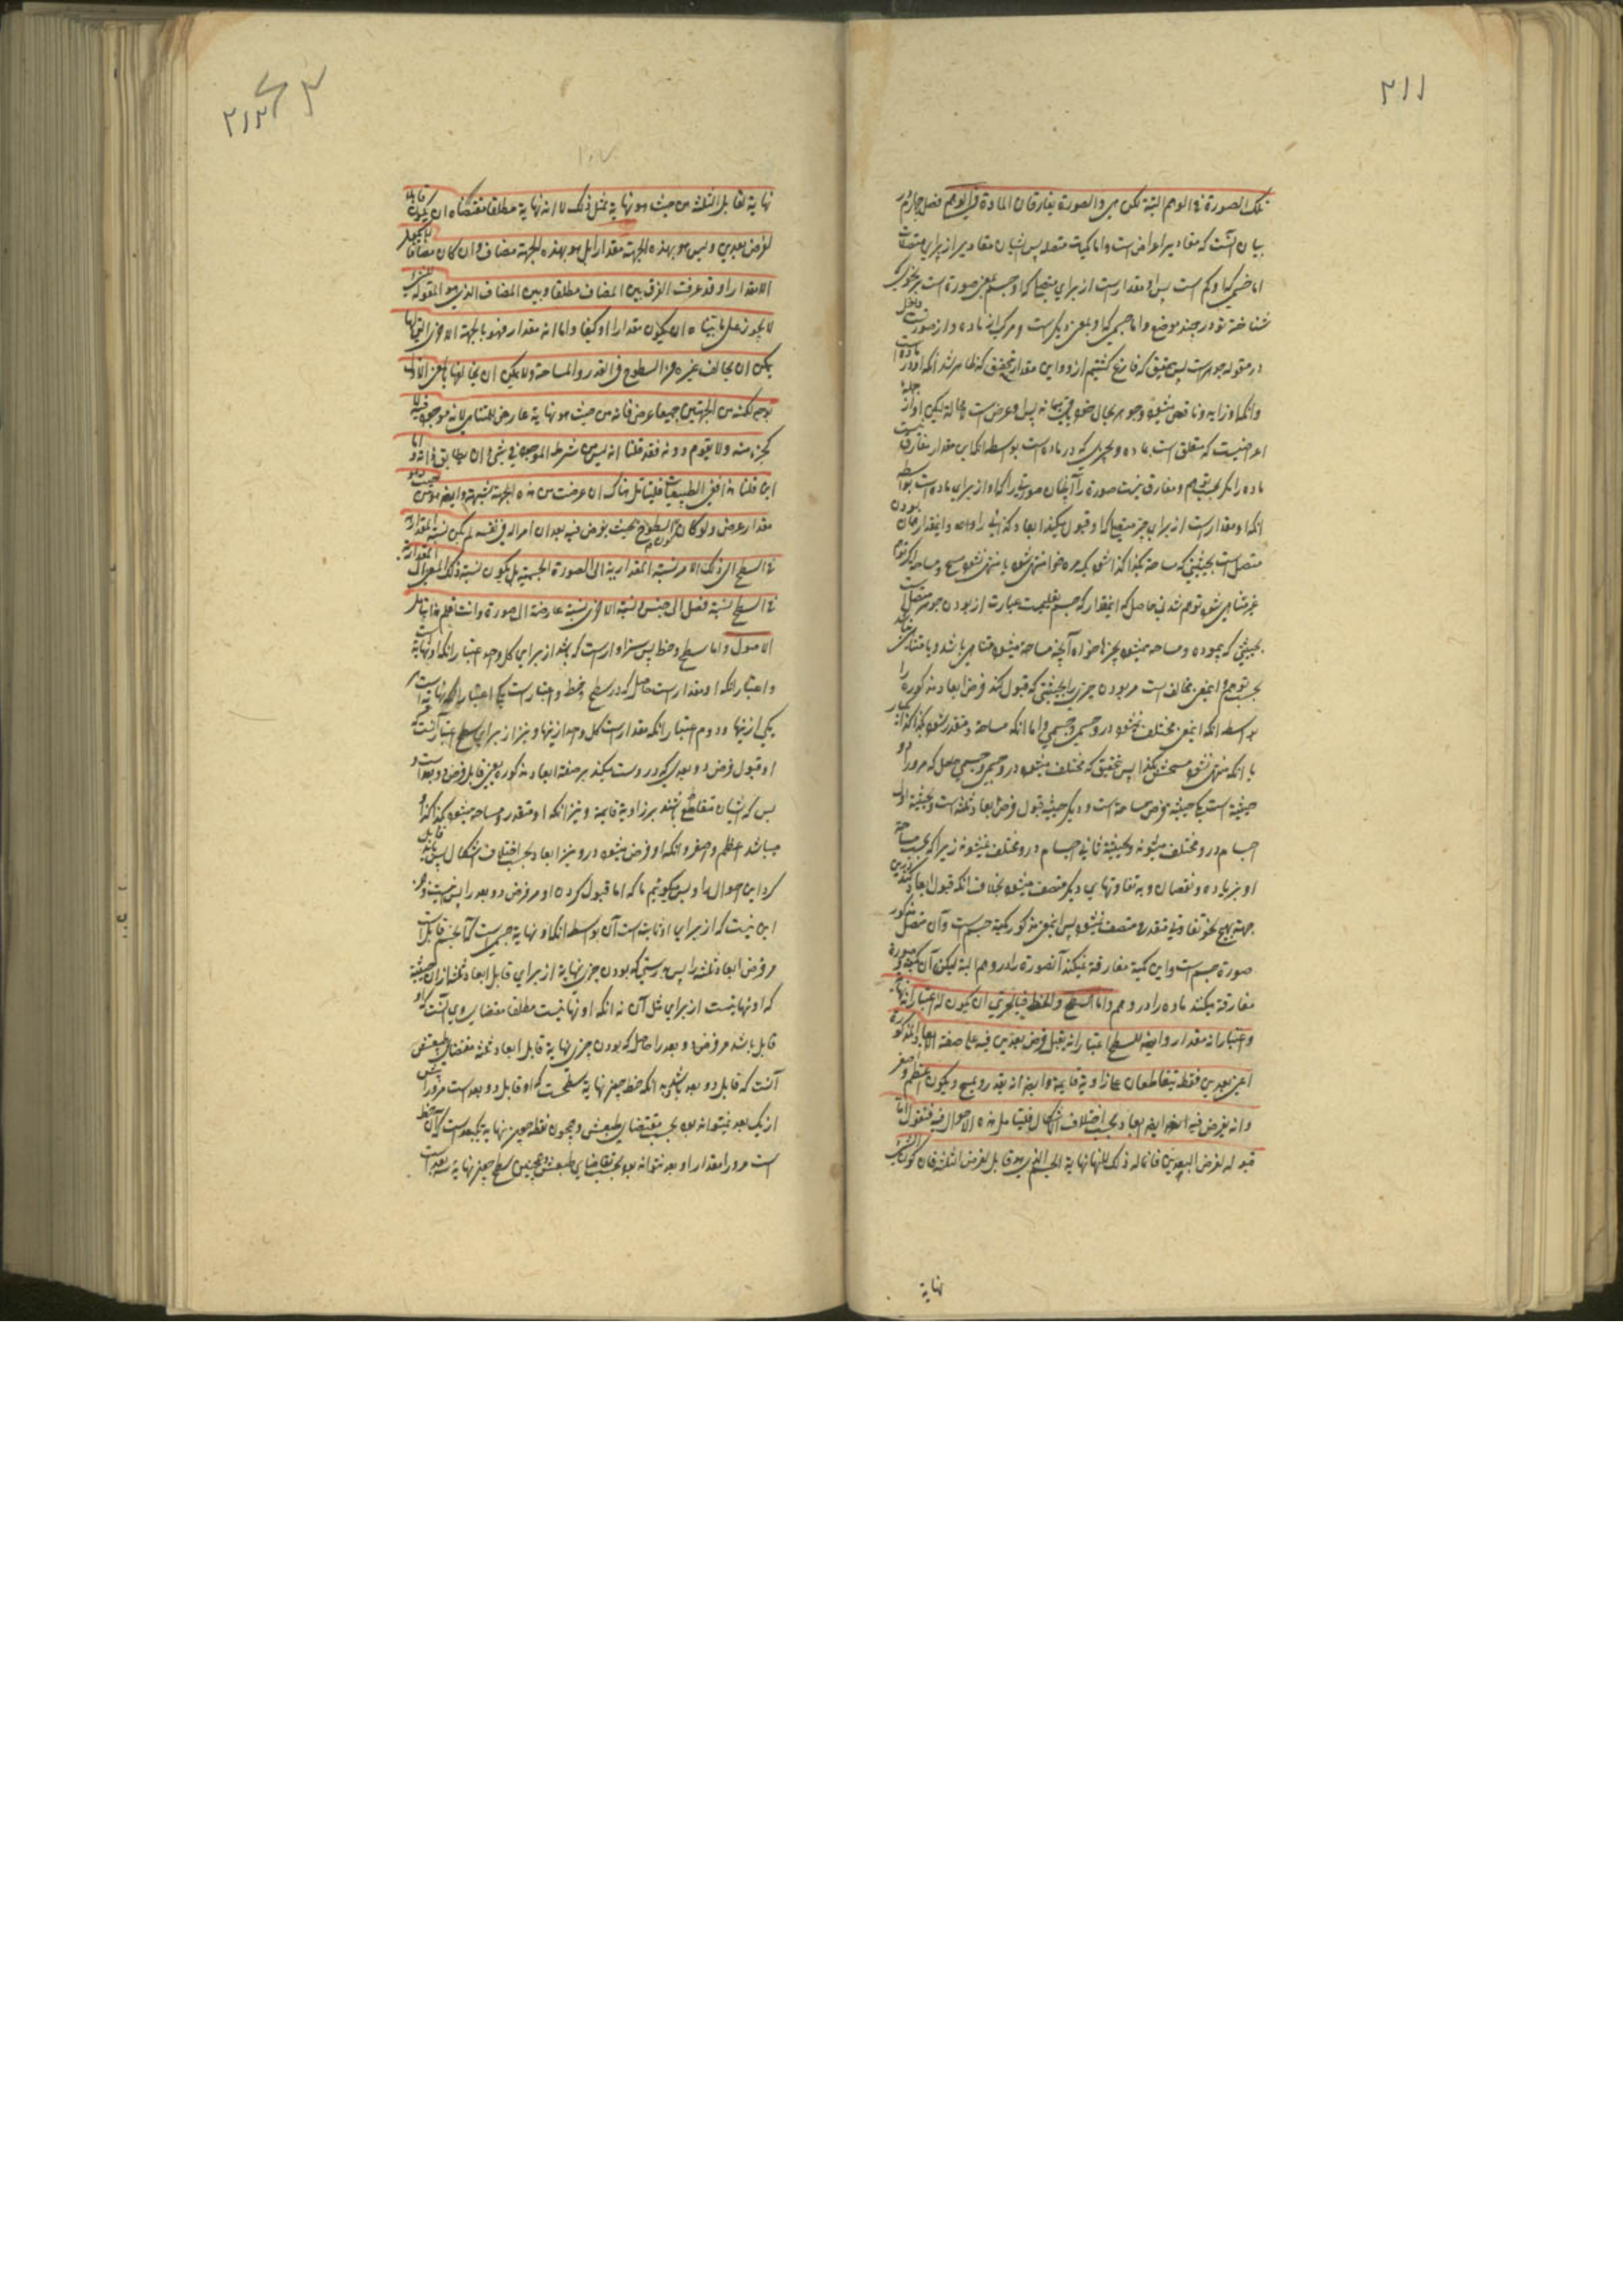 ٢١١
تلك الصورة في الوهم البتة لكن هي والصورة يفارقان المادة في الوهم فصل چهارم در
بيان آنست كه مقادير اعراض است واما كميات متصله پس ايشان مقادير از براي متصلات
اما جسمي كه او كم است پس او مقدار است از براي متصلي كه او جسم بمعني صورة است بر نحوي كه
شناخته تو در چند موضع واما جسمي كه او بمعني ديگر است و مركب از ماده واز صورت داخل
در مقوله جوهر است پس بتحقيق كه فارغ گشتيم ازو واين مقدار بتحقيق كه ظاهر شد انكه او در ماده است
وانكه او زايد وناقص ميشود وجوهر بحال خود باقي
اعراضيست كه متعلق است بماده وبچيزي كه در ماده است بواسطه انكه اين مقدار مفارق نيست
ماده را مگر بحسب توهم ومفارق نيست صورة را آنچنان صورتي را كه او از براي ماده است بواسطه
انكه او مقدار است از براي چيز متصلي كه او قبول ميكند ابعاد كذائي را
متصل است بحيثيتي كه مساحة بكذا كذا شود
غير متناهي شود توهم شدني حاصل كه اينمقدار كه جسم تعليميست عبارت از بودن جوهر متصل است
بحيثيتي كه پيموده ومساحة ميشود بچيزها خواه آنچه مساحة ميشود متناهي باشد ويا نامتناهي باشد
بحسب توهم واينمعني مخالف است مر بودن چيزي را بحيثيتي كه قبول كند فرض ابعاد مذكوره را
بواسطه انكه اينمعني مختلف نميشود درو جسمي وجسمي واما انكه مساحة ومتقدر شود بكذا كذا بار
يا انكه منتهي نشود مسحش بكذا پس بتحقيق كه مختلف ميشود درو جسمي وجسمي حاصل كه مر او را دو
حيثية است يكي حيثية فرض مساحة است وديگر حيثية قبول فرض ابعاد ثلثه است وبحيثية اول
اجسام درو مختلف ميشوند وبحيثية ثاني اجسام درو مختلف نميشوند زيرا كه بحسب مساحة
او بزياده ونقصان وبه تفاوتهاي ديگر متصف ميشود بخلاف انكه قبول ابعاد كند كه درين
جهة بهيچ نحو تفاوتي متقدره متصف نميشود پس اينمعني مذكور كمية جسم است وآن متصل مذكور
صورة جسم است واين كمية مفارقة نميكند آنصورة را در وهم البتة ليكن آن كميه وصورة
مفارقة ميكنند ماده را در وهم واما السطح والخط فبالحري ان يكون له اعتبار انه نهاية
واعتبار انه مقدار وايضا للسطح اعتبار انه يقبل فرض بعدين فيه على صفة الابعاد المذكورة
اعني بعدين فقط يتقاطعان على زاوية قايمة وايضا انه يقدر ويمسح ويكون اعظم واصغر
وانه يفرض فيه ايضا ابعاد بحسب اختلاف الاشكال فليتامل هذه الاحوال فيه فنقول اما
قبوله لفرض البعدين فانما له ذلك لانه نهاية الجسم الذي هو قابل لفرض الثلثة فان كون الشيء
نهاية
٢١٢
نهاية لقابل الثلثة من حيث هو نهاية لمثل ذلك لا انه نهاية مطلقا مقتضاه ان يكون قابلا
لفرض بعدين وليس هو بهذه الجهة مقدارا بل هو بهذه الجهة مضاف وان كان مضافا لا يكون
الا مقدارا وقد عرفت الفرق بين المضاف مطلقا وبين المضاف الذي هو المقولة الذي
لا يجوز على ما بيناه ان يكون مقدارا او كيفا واما انه مقدار فهو بالجهة الاخرى التي بها
يمكن ان يخالف غيره من السطوح في القدر والمساحة ولا يمكن ان يخالفها بالمعنى الاول
بوجه لكنه من الجهتين جميعا عرض فانه من حيث هو نهاية عارض للمتناهي لانه موجود فيه لا
كجزء منه ولا يقوم دونه فقد قلنا انه ليس من شرط الموجود في شيء ان يطابق ذاته واما
اين قلنا هذا ففي الطبيعيات فليتامل هناك ان عرضت من هذه الجهة شبهة وايضا هو من حيث هو
مقدار عرض ولو كان كون السطح بحيث يفرض فيه بعدان امرا له في نفسه لم يكن نسبة المقدارية
في السطح الى ذلك الامر نسبة المقدارية الى الصورة الجسمية بل يكون نسبة ذلك المعنى الى المقدارية
في السطح نسبة فصل الى جنس والنسبة الاخرى نسبة عارضة الى صورة وانت تعلم هذا بتامل
الاصول واما سطح وخط پس سزاوار است كه باشد از براي كل واحد اعتبار انكه او نهاية است
واعتبار انكه او مقدار است حاصل كه در سطح وخط دو اعتبار است يكي اعتبار انكه نهايت است هر
يكي ازينها ودوم اعتبار انكه مقدار است كل واحد ازينها ونيز از براي سطح اعتبار آنست كه
او قبول فرض دو بعدي كه درو است ميكند بر صفة ابعاد مذكوره يعني قابل فرض دو بعد است و
بس كه ايشان متقاطع باشند بر زاوية قايمة ونيز انكه او متقدر ومساحة ميشود بكذا كذا و
ميباشد اعظم واصغر وانكه او فرض ميشود درو نيز ابعاد بحسب اختلاف اشكال پس تامل
كرد اين احوال را
اين نيست كه از براي او ثابت است آن بواسطه انكه او نهاية جسمي است كه آنجسم قابل است
مر فرض ابعاد ثلثه را پس بدرستي كه بودن چيزي نهاية از براي قابل ابعاد ثلثه از آن حيثية
كه او نهايتست از براي مثل آن نه انكه او نهايتيست مطلقا مقتضاي وي آنست كه او
قابل باشد مر فرض دو بعد را حاصل كه بودن چيزي نهاية قابل ابعاد ثلثه مقتضاي طبعش
آنست كه قابل دو بعد باشد
از يك بعد نميتواند بود بحسب مقتضاي طبعش وهمچون نقطه چون نهاية يكبعد است كه آن خط
است مر او را مقدار او بعد نميتواند بود بحسب تقاضاي طبعش وهمچنين سطح چون نهاية سه بعد است